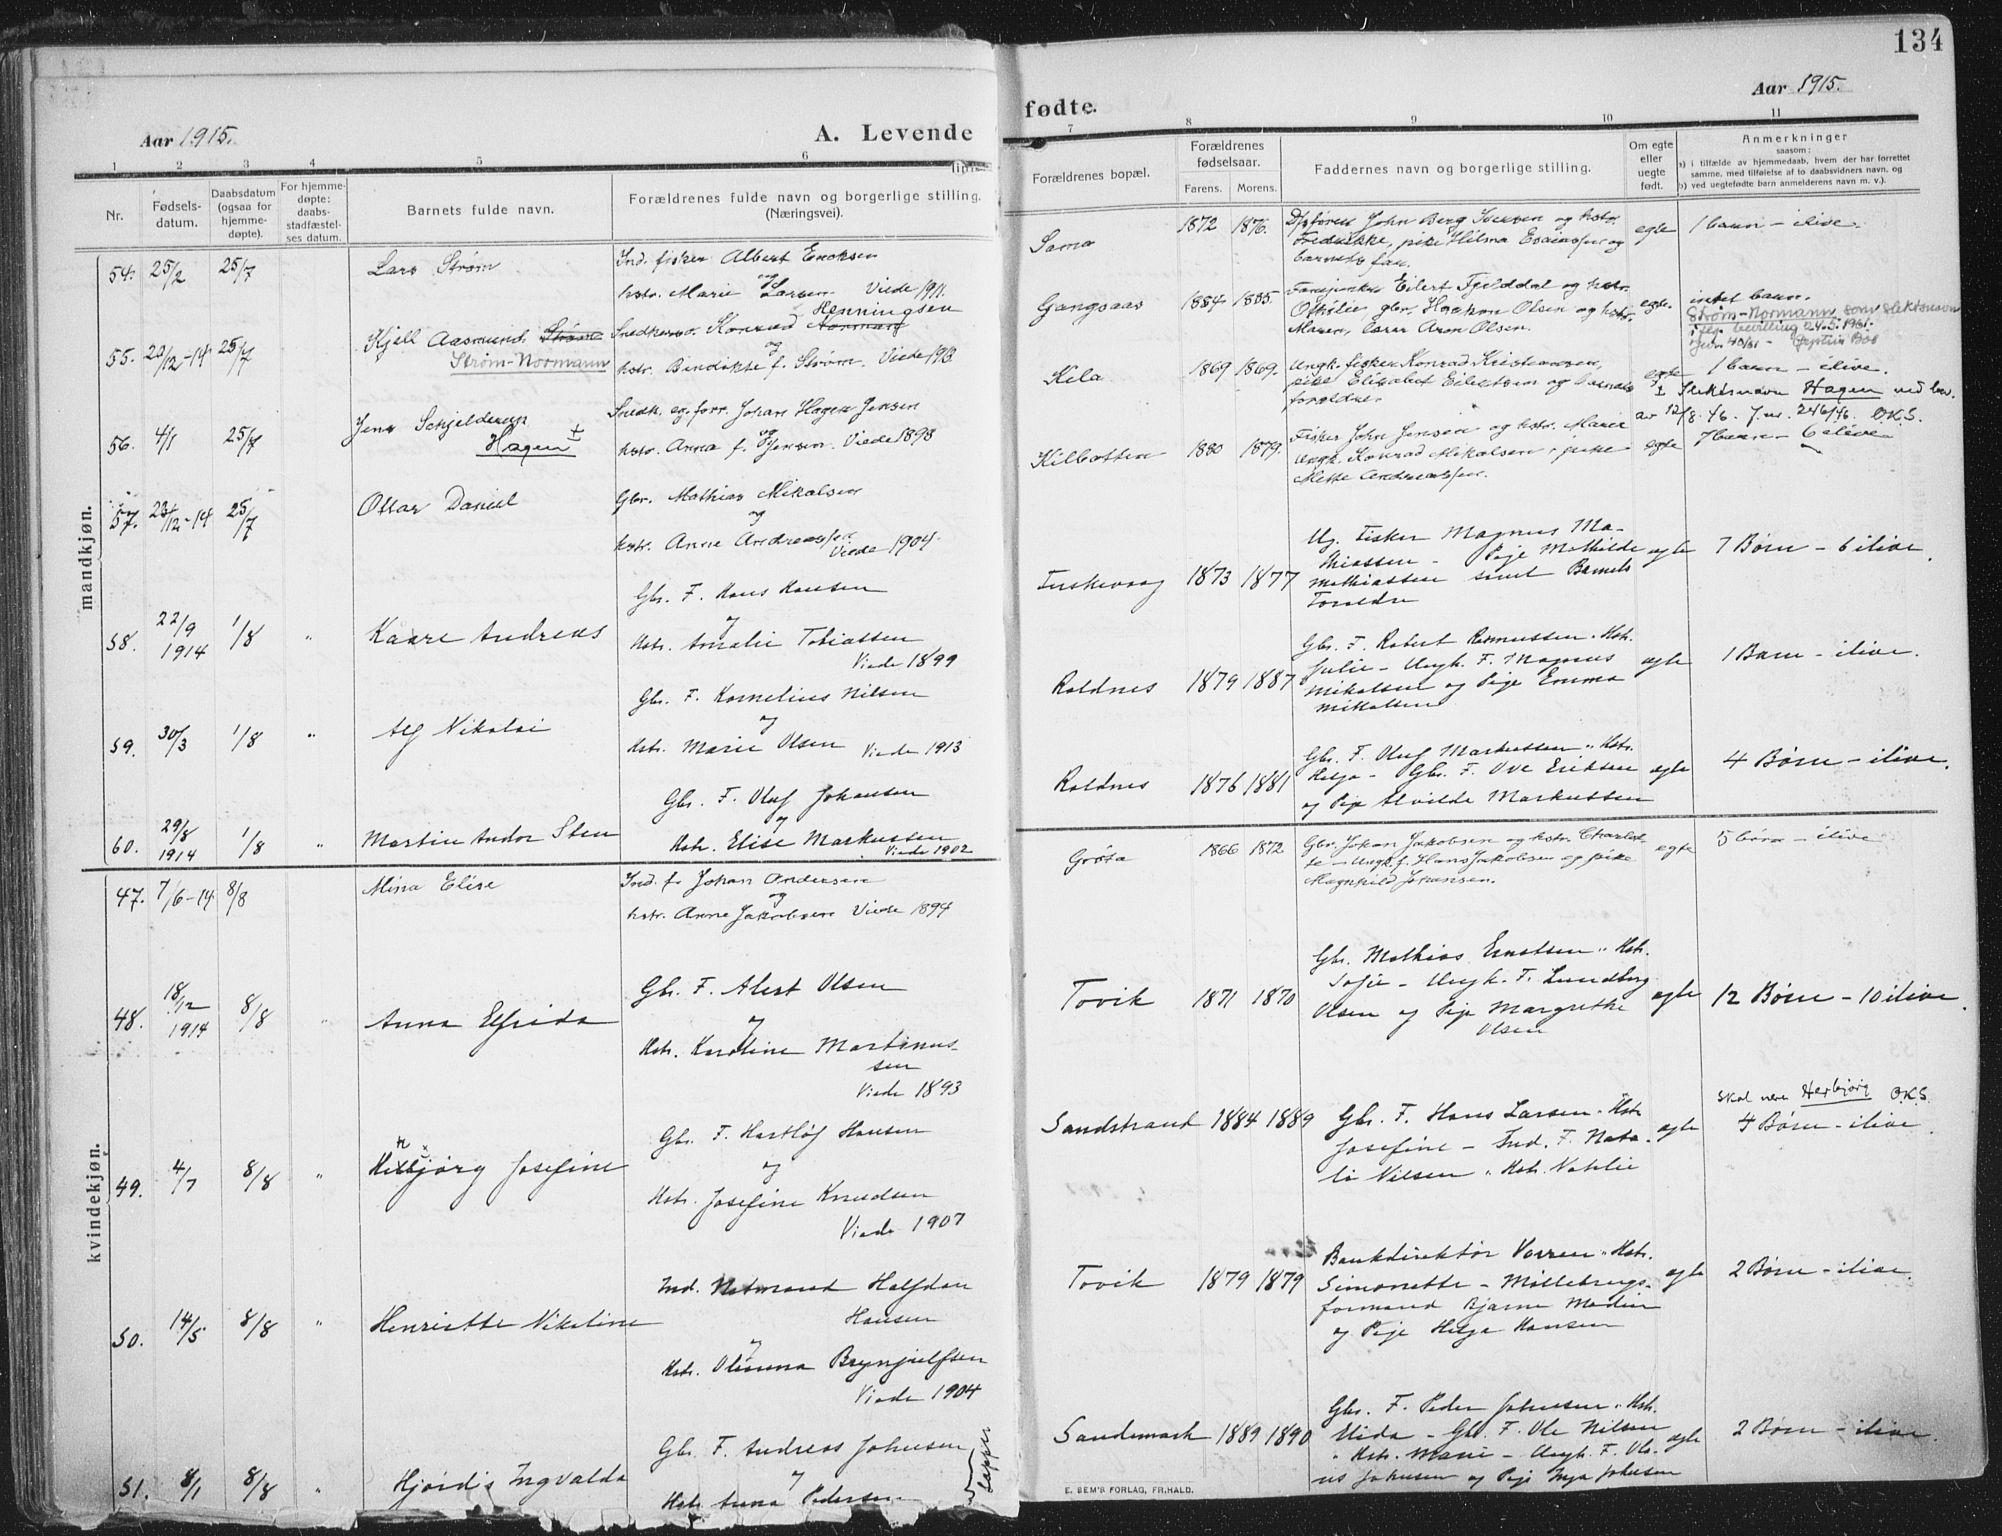 134
Aar 1915.
A. Levende
fødte.
Aar 1915.
1 2 3 4 5 6
7 8 9 10 11
Nr.
Fødsels-
datum.
Daabsdatum
(ogsaa for
hjemme-
døpte).
For hjemme-
døpte:
daabs-
stadfæstel-
ses datum.
Barnets fulde navn.
Forældrenes fulde navn og borgerlige stilling.
(Næringsvei).
Forældrenes bopæl.
Forældrenes
fødselsaar.
Farens. Morens.
Faddernes navn og borgerlige stilling.
Om egte
eller
uegte
født.
Anmerkninger
saasom:
a) i tilfælde av hjemmedaab, hvem der har forrettet
samme, med tilføielse af to daabsvidners navn, og
b) ved uegtefødte barn anmelderens navn m. v.).
mandkjøn.
54. 25/2 25/7 Lars Strøm
Ind. fisker Albert Enoksen
og
hstr. Marie Larsen Viede 1911.
Sama 1872 1876.
John Berg Iversen og hstr.
Fredrikke, pike Hilma Esaiassen og
barnets far.
egte 1 barn - ilive.
55. 22/12-14 25/7 Kjell Aasmund Strøm
Strøm-Normann
Henningsen
Snedkersv. Konrad Norman
og
hstr. Bendikte f. Strøm. Viede 1913.
Gangsaas 1884 1885.
Eilert Fjelddal og hstr.
Othilie, gbr. Haakon Olsen og hstr.
Maren, lærer Aron Olsen.
egte. intet barn.
Strøm-Normann som slektsnavn
iflg. bevilling 24.5.1961.
56. 4/1 25/7 Jens Schjelderup
Hagen ±
Snedk. og forr. Johan Hagen Jensen
og
hstr. Anna f. Jensen. Viede 1898
Kila 1869 1869.
Ungk. fisker Konrad Kristiansen,
pike Elisabet Eilertsen og barnets
forældre.
egte 1 barn - ilive.
± Slektsnavn Hagen ved bev.
av 12/8.46. J.nr. 246/46. O.K.S.
57. 23/12-14 25/7 Ottar Daniel
Gbr. Mathias Mikalsen
og
hstr. Anne Andreassen
Viede 1904.
Kilbotten 1880 1879.
Fisker John Jensen og hstr. Marie
Ungk. Konrad Mikalsen, pike
Mette Andreassen.
egte 7 barn - 6 ilive
58. 22/9 1914 1/8 " Kaare Andreas
Gbr. F. Hans Hansen
og
Hstr. Amalie Tobiassen
Viede 1899
Fuskevaag 1873 1877
Ug. Fisker Magnus Ma-
thiassen - Pije Mathilde
Mathiassen samt Barnets
Foreldre
egte 7 Børn - 6 ilive.
59. 30/3 1/8 " Alf Nikolai
Gbr. F. Kornelius Nilsen
og
Hstr. Marie Olsen Viede 1913
Roldnes 1879 1887
Gbr. F. Robert Rasmussen " Hstr.
Julie - Ungk. F. Magnus
Mikalsen og Pije Emma
Mikalsen
egte 1 Barn - ilive.
60. 29/8 1914 1/8 " Martin Andor Sten
Gbr. F. Oluf Johansen
og
Hstr. Elise Markussen
Viede 1902
Roldnes 1876 1881
Gbr. F. Oluf Markussen " Hstr.
Helga - Gbr. F. Ove Eriksen
og Pije Alvilde Markussen
egte 4 Børn - ilive.
kvindekjøn.
47. 7/6-14 8/8 Mina Elise
Ind. f. Johan Andersen
og
hstr. Anne Jakobsen Viede 1894
Grøta 1866 1872
Gbr. Johan Jakobsen og hstr. Charlot-
te - Ungk. f. Hans Jakobsen og pike
Magnhild Johansen.
egte 5 børn - ilive
48. 18/12 1914 8/8 " Anna Elfrida
Gbr. F. Alert Olsen
og
Hstr. Karoline Martinus-
sen
Viede 1893
Tovik 1871 1870
Gbr. Mathias Ernstsen " Hstr.
Sofie - Ungk. F. Lundberg
Olsen og Pije Margrethe
Olsen
egte 12 Børn - 10 ilive.
49. 4/7 8/8 " Herbjørg Josefine
Gbr. F. Hartløf Hansen
og
Hstr. Josefine Knudsen
Viede 1907
Sandstrand 1884 1889
Gbr. F. Hans Larsen " Hstr.
Josefine - Ind. F. Nata-
li Nilsen " Hstr. Nathlie
egte
Skal være Herbjørg O.K.S.
4 Børn - ilive.
50. 14/5 8/8 " Henriette Nikoline
Ind. Notmand Halfdan
Hansen
og
Hstr. Olianna Brynjulfsen
Viede 1904
Tovik 1879 1879
Bankdirektør Vorren " Hstr.
Simonette - Møllebrugs-
formand Bjarne Modin
og Pije Helga Hansen
egte 2 Børn - ilive.
51. 8/1 8/8 " Hjørdis Ingvalda
Gbr. F. Andreas Johnsen
og
Hstr. Anna Pedersen
Lapper
Sandemark 1889 1890
Gbr. F. Peder Johnsen " Hstr.
Alida - Gbr. F. Ole Nilsen
" Hstr. Marie - Ungk. F. Ole-
us Johnsen og Pije Inga Johnsen
egte 2 Børn - ilive.
E. SEM'S FORLAG, FR.HALD.